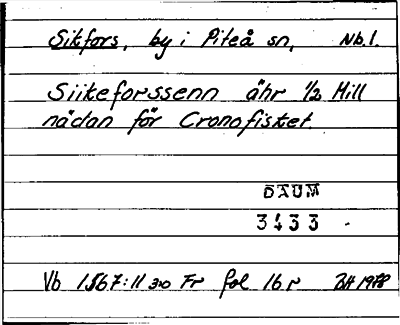 Sikfors, by i Piteå sn, Nb.l.
Siikeforssenn ähr 1/2 Mill
nädan för Cronofisket.
DAUM
3433
Vb 1567:11 Fr fol 16 r 1978